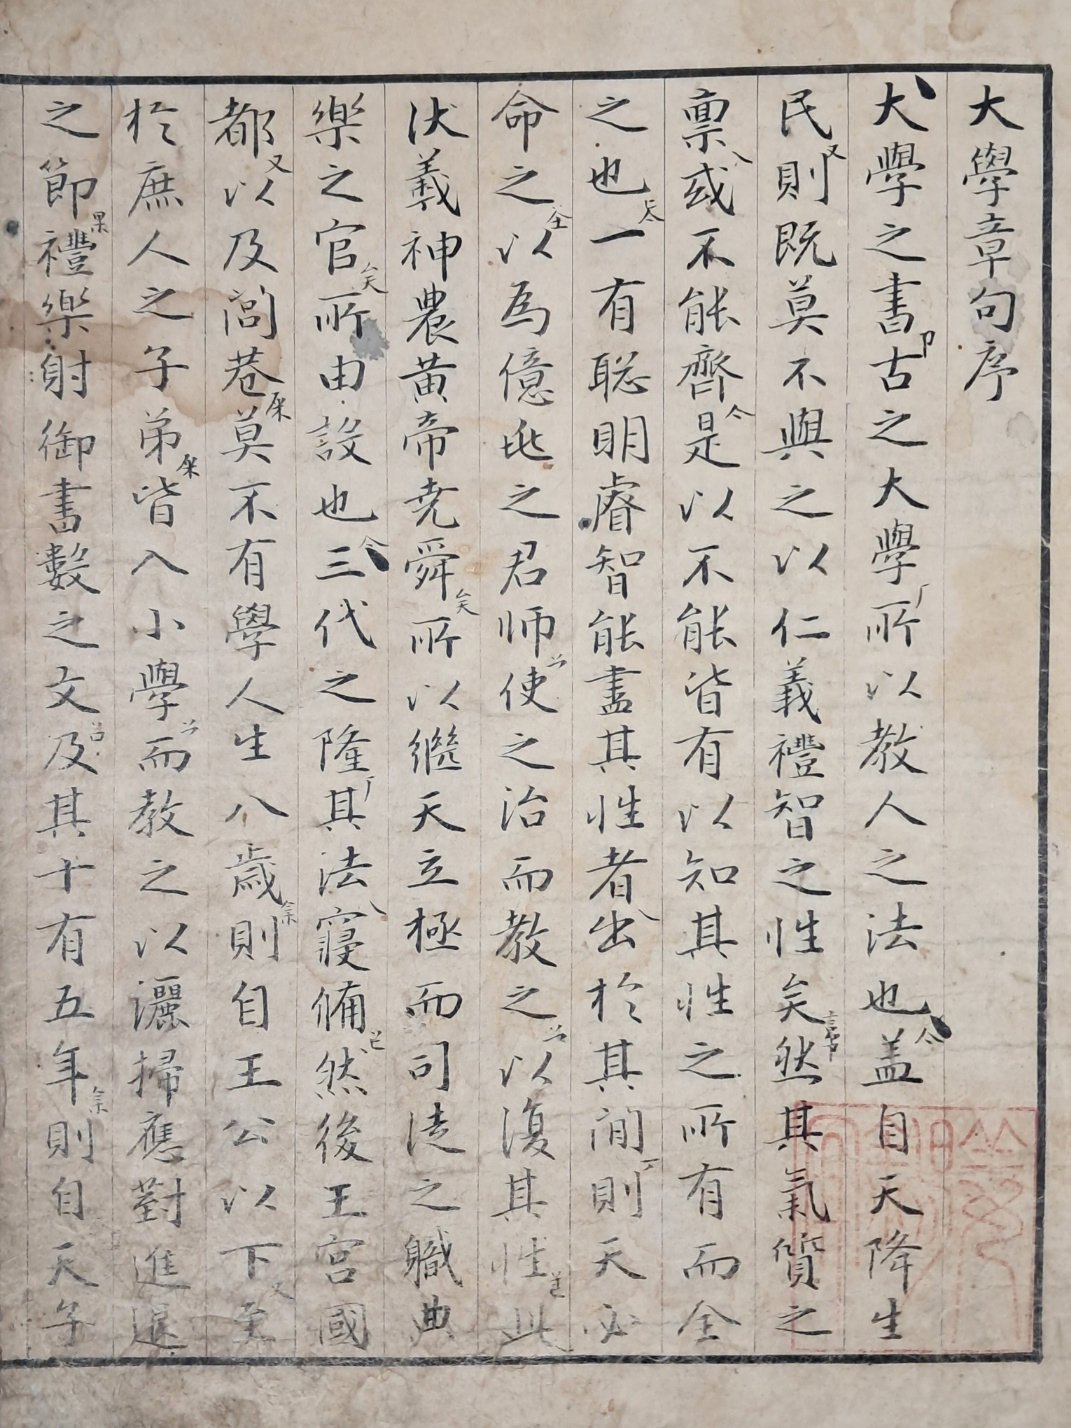 大學章句序
大學之書古之大學所以教人之法也盖自天降生
民則既莫不與之以仁義禮智之性矣然其氣質之
禀或不能齊是以不能皆有以知其性之所有而全
之也一有聡明睿智能盡其性者出於其間則天必
命之以為億兆之君師使之治而教之以復其性此
伏羲神農黃帝尭舜所以繼天立極而司徒之職典
樂之官所由設也三代之隆其法寢備然後王宮國
都以及閭巷莫不有學人生八歲則自王公以下至
於庶人之子弟皆入小學而教之以灑掃應對進退
之節禮樂射御書數之文及其十有五年則自天子